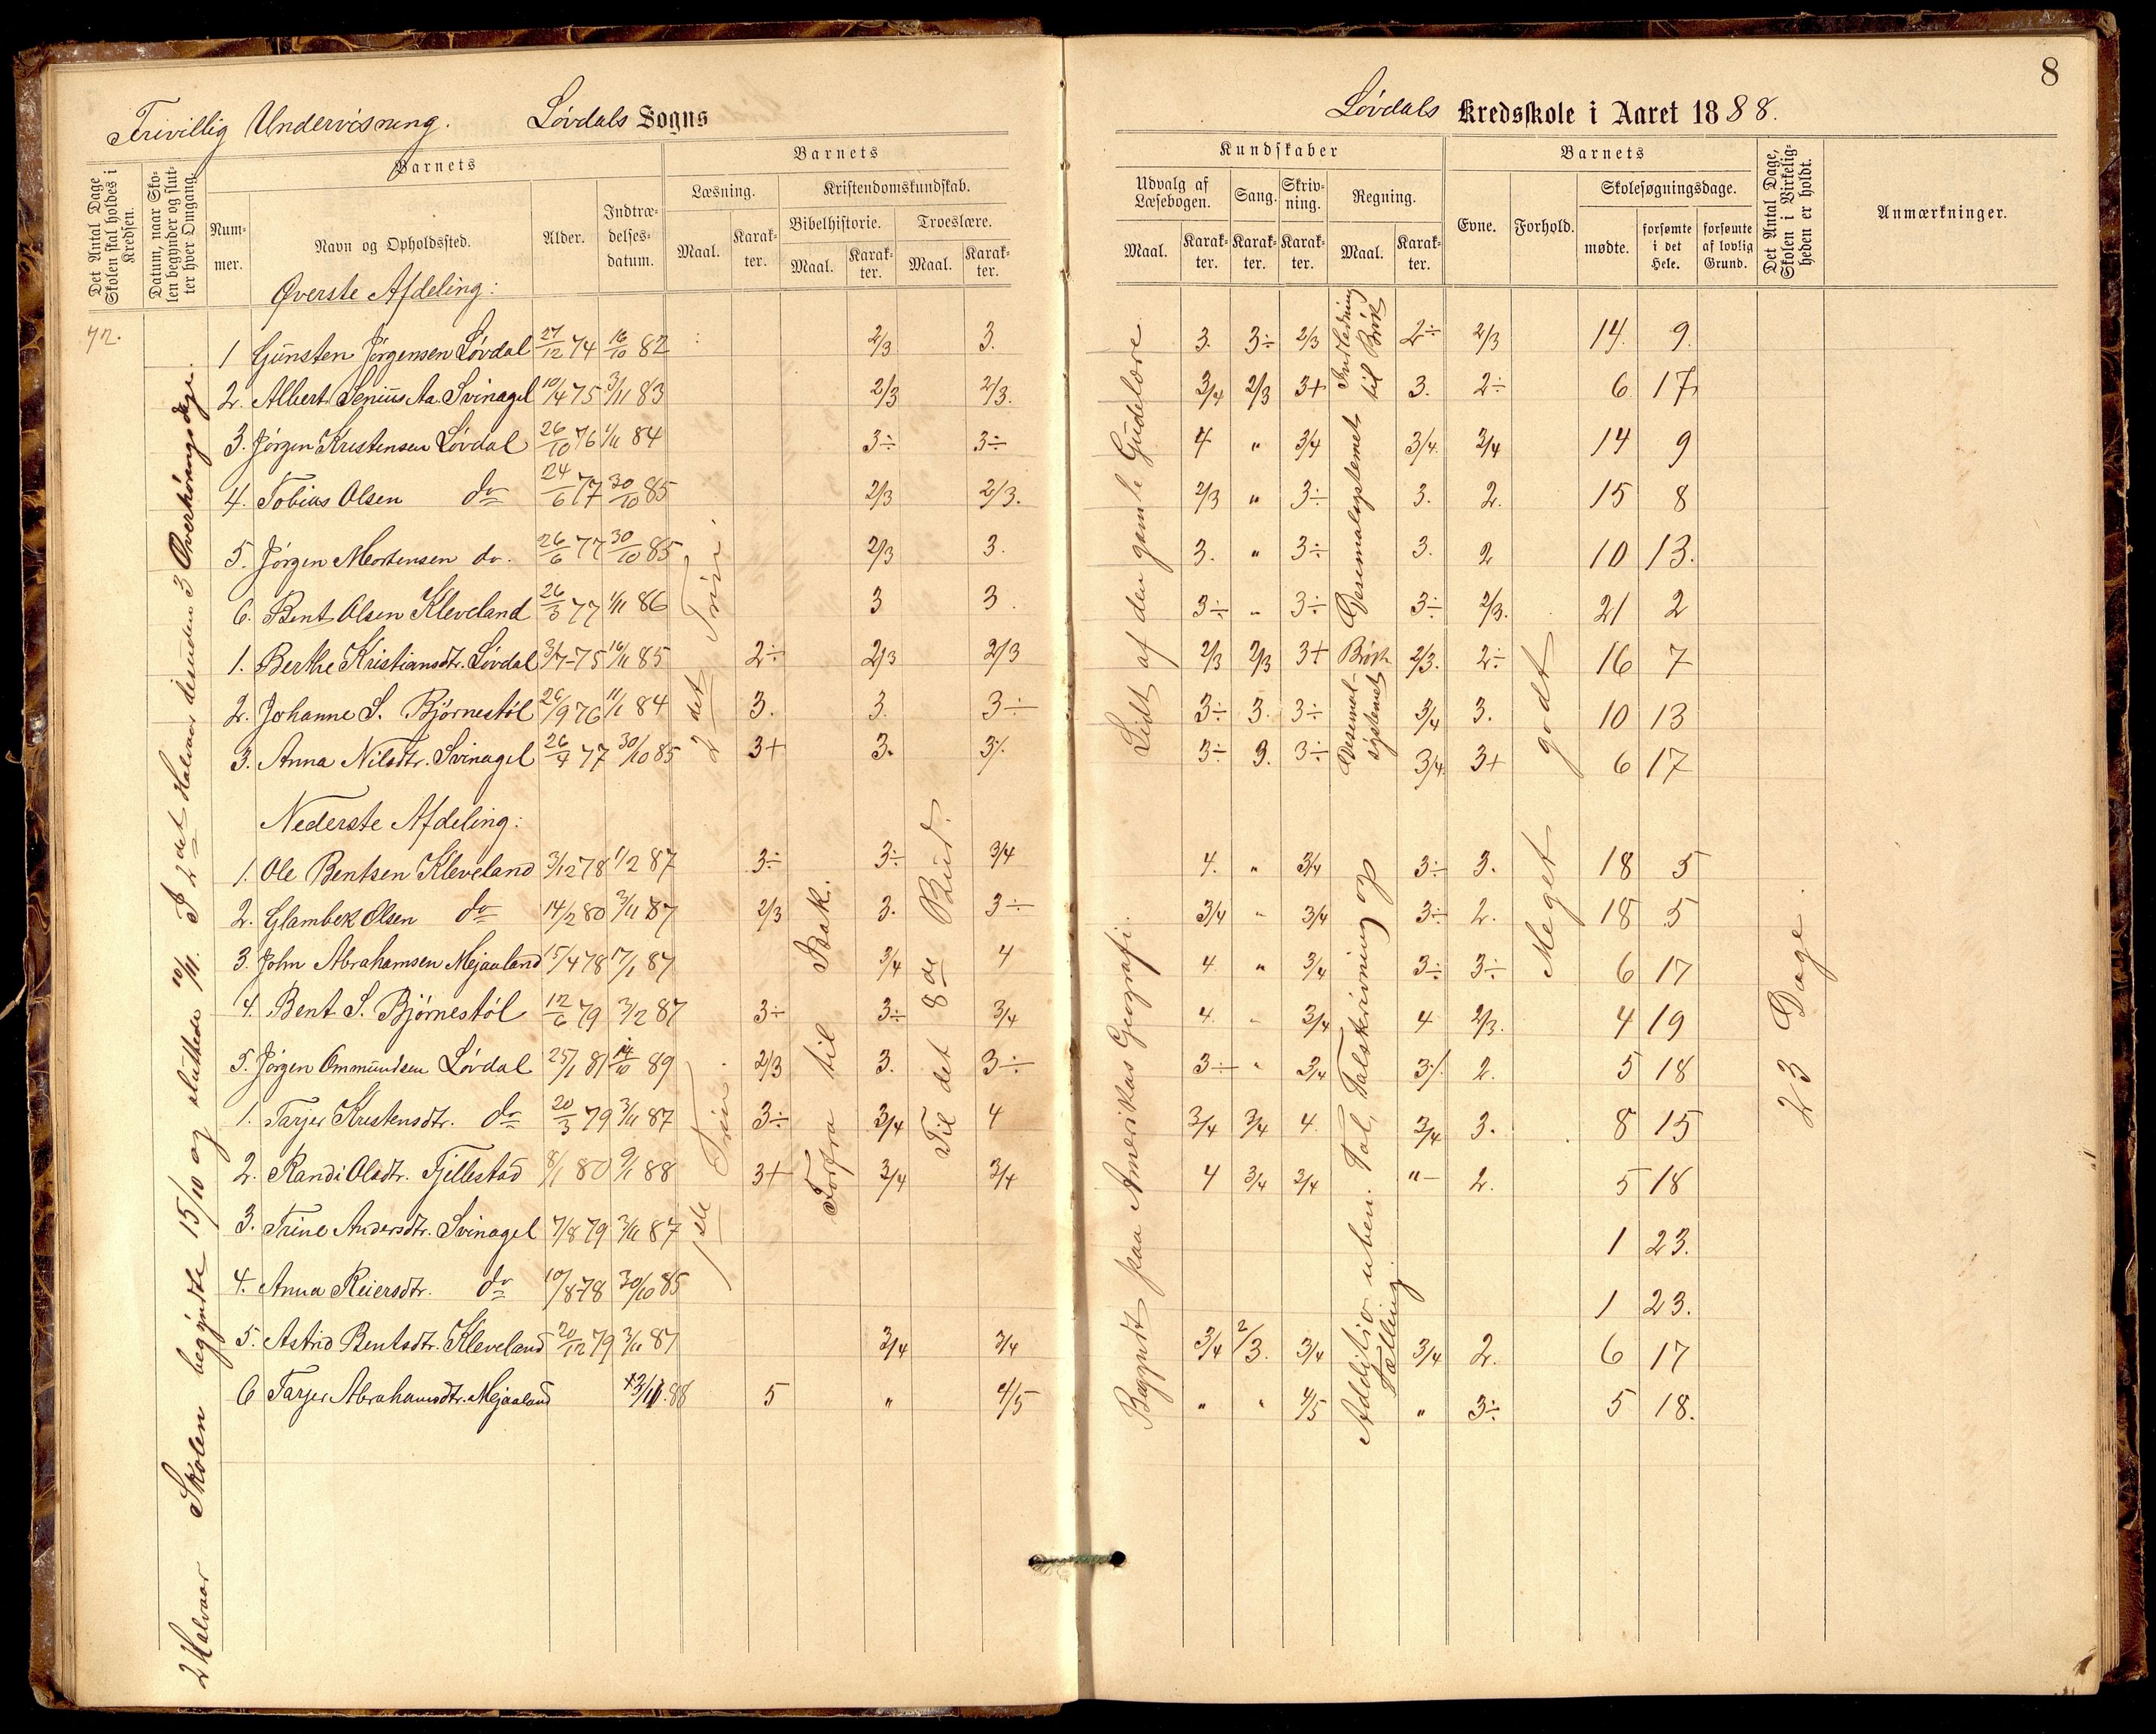 8
Frivillig Undervisning. Løvdals Sogns
Løvdals Kredsskole i Aaret 1888.
Det Antal Dage Skolen skal holdes i Kredsen.
Datum, naar Skolen begynder og slutter hver Omgang.
Barnets
Nummer.
Navn og Opholdssted.
Alder.
Indtrædelsesdatum.
Barnets
Læsning.
Maal.
Karakter.
Kristendomskundskab.
Bibelhistorie.
Maal.
Karakter.
Troeslære.
Maal.
Karakter.
Kundskaber
Udvalg af Læsebogen.
Maal.
Karakter.
Sang.
Karakter.
Skrivning.
Karakter.
Regning.
Maal.
Karakter.
Barnets
Evne.
Forhold.
Skolesøgningsdage.
mødte.
forsømte i det Hele.
forsømte af lovlig Grund.
Det Antal Dage, Skolen i Virkeligheden er holdt.
Anmærkninger.
72.
2 Halvaar Skolen begyndte 15/10 og sluttede 10/11. I 2det Halvaar desuden 3 Overhøringsdage.
Øverste Afdeling:
1 Gunsten Jørgensen Løvdal 27/12 74 16/10 82 2/3 3. 3. 3÷ 2/3 2÷ 2/3 14. 9.
2. Albert Senius Aa. Svinagel 10/4 75 3/11 83 2/3 2/3. 3/4 2/3 3+ 3. 2÷ 6 17
3. Jørgen Kristensen Løvdal 26/10 76 1/11 84 3÷ 3÷ 4 " 3/4 3/4. 3/4 14 9
4. Tobias Olsen do 24/6 77 30/10 85 2/3 2/3. 2/3 " 3÷ 3. 2. 15 8
5. Jørgen Mortensen do. 26/6 77 30/10 85 2/3 3. 3. " 3÷ 3. 2 10 13.
6. Bent Olsen Kleveland 26/3 77 1/11 86 3 3. 3÷ " 3÷ 3÷ 2/3. 21 2
1. Berthe Kristiansdtr. Løvdal 3/7 75 16/11 85 2÷ 2/3 2/3 2/3 2/3 3+ Brøk 2/3. 2÷ 16 7
2. Johanne S. Bjørnestøl 26/9 76 11/11 84 3. 3. 3÷ 3÷ 3. 3÷ 3/4 3. 10 13
3. Anna Nilsdtr. Svinagel 26/4 77 30/10 85 3+ 3. 3÷ 3÷ 3. 3÷ 3/4 3+ 6 17
2det Trin.
Lidt af den gamle Gudelære
Indledning til Brøk
Desemalsystemet
Desemalsystemet
Meget godt
Nederste Afdeling:
1. Ole Bentsen Kleveland 3/12 78 1/2 87 3÷ 3÷ 3/4 4. " 3/4 3÷ 3. 18 5
2. Glambek Olsen do 14/2 80 3/11 87 2/3 3. 3÷ 3/4 " 3/4 3÷ 2. 18 5
3. John Abrahamsen Mejaaland 15/4 78 17/1 87 3/4 4 4 " 3/4 3÷ 3÷ 6 17
4. Bent S. Bjørnestøl 12/6 79 3/2 87 3÷ 3÷ 3/4 4. " 3/4 4 2/3. 4 19
5. Jørgen Ommundsen Løvdal 25/1 81 14/10 89 2/3 3. 3÷ 3÷ " 3/4 3÷ 2. 5 18
1. Tarjer Kristensdtr. do 20/3 79 3/11 87 3÷ 3/4 4 3/4 3/4 4. 3/4 3. 8 15
2. Randi Olsdtr. Fjellestad 8/1 80 9/1 88 3+ 3/4 3/4 4 3/4 3/4 " 2. 5 18
3. Trine Andersdtr. Svinagel 7/8 79 3/11 87 1 23.
4. Anna Reiersdtr. do 10/8 78 30/10 85 1 23.
5. Astrid Bentsdtr. Kleveland 20/12 79 3/11 87 3/4 3/4 3/4 2/3. 3/4 3/4 2. 6 17
6 Tarjer Abrahamsdtr. Mejaaland 88 5 " 4/5 " " 4/5 " 3÷ 5 18.
1ste Trin
Forfra til Isak.
Til det 8de Bud.
Begyndt paa Amerikas Geografi.
Addition uben. Tal, Talskrivning og Tælling
23 Dage.